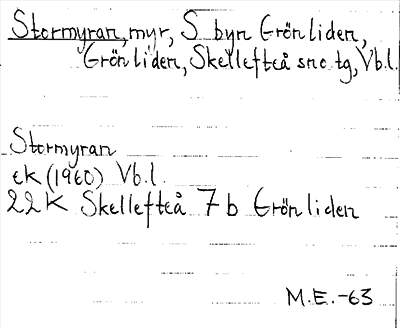 Stormyran, myr, S byn Grönliden,
Grönliden, Skellefteå sn o. tg, Vb.l.
Stormyran
ek (1960) Vb.l.
22K Skellefteå 7b Grönliden
M.E.-63